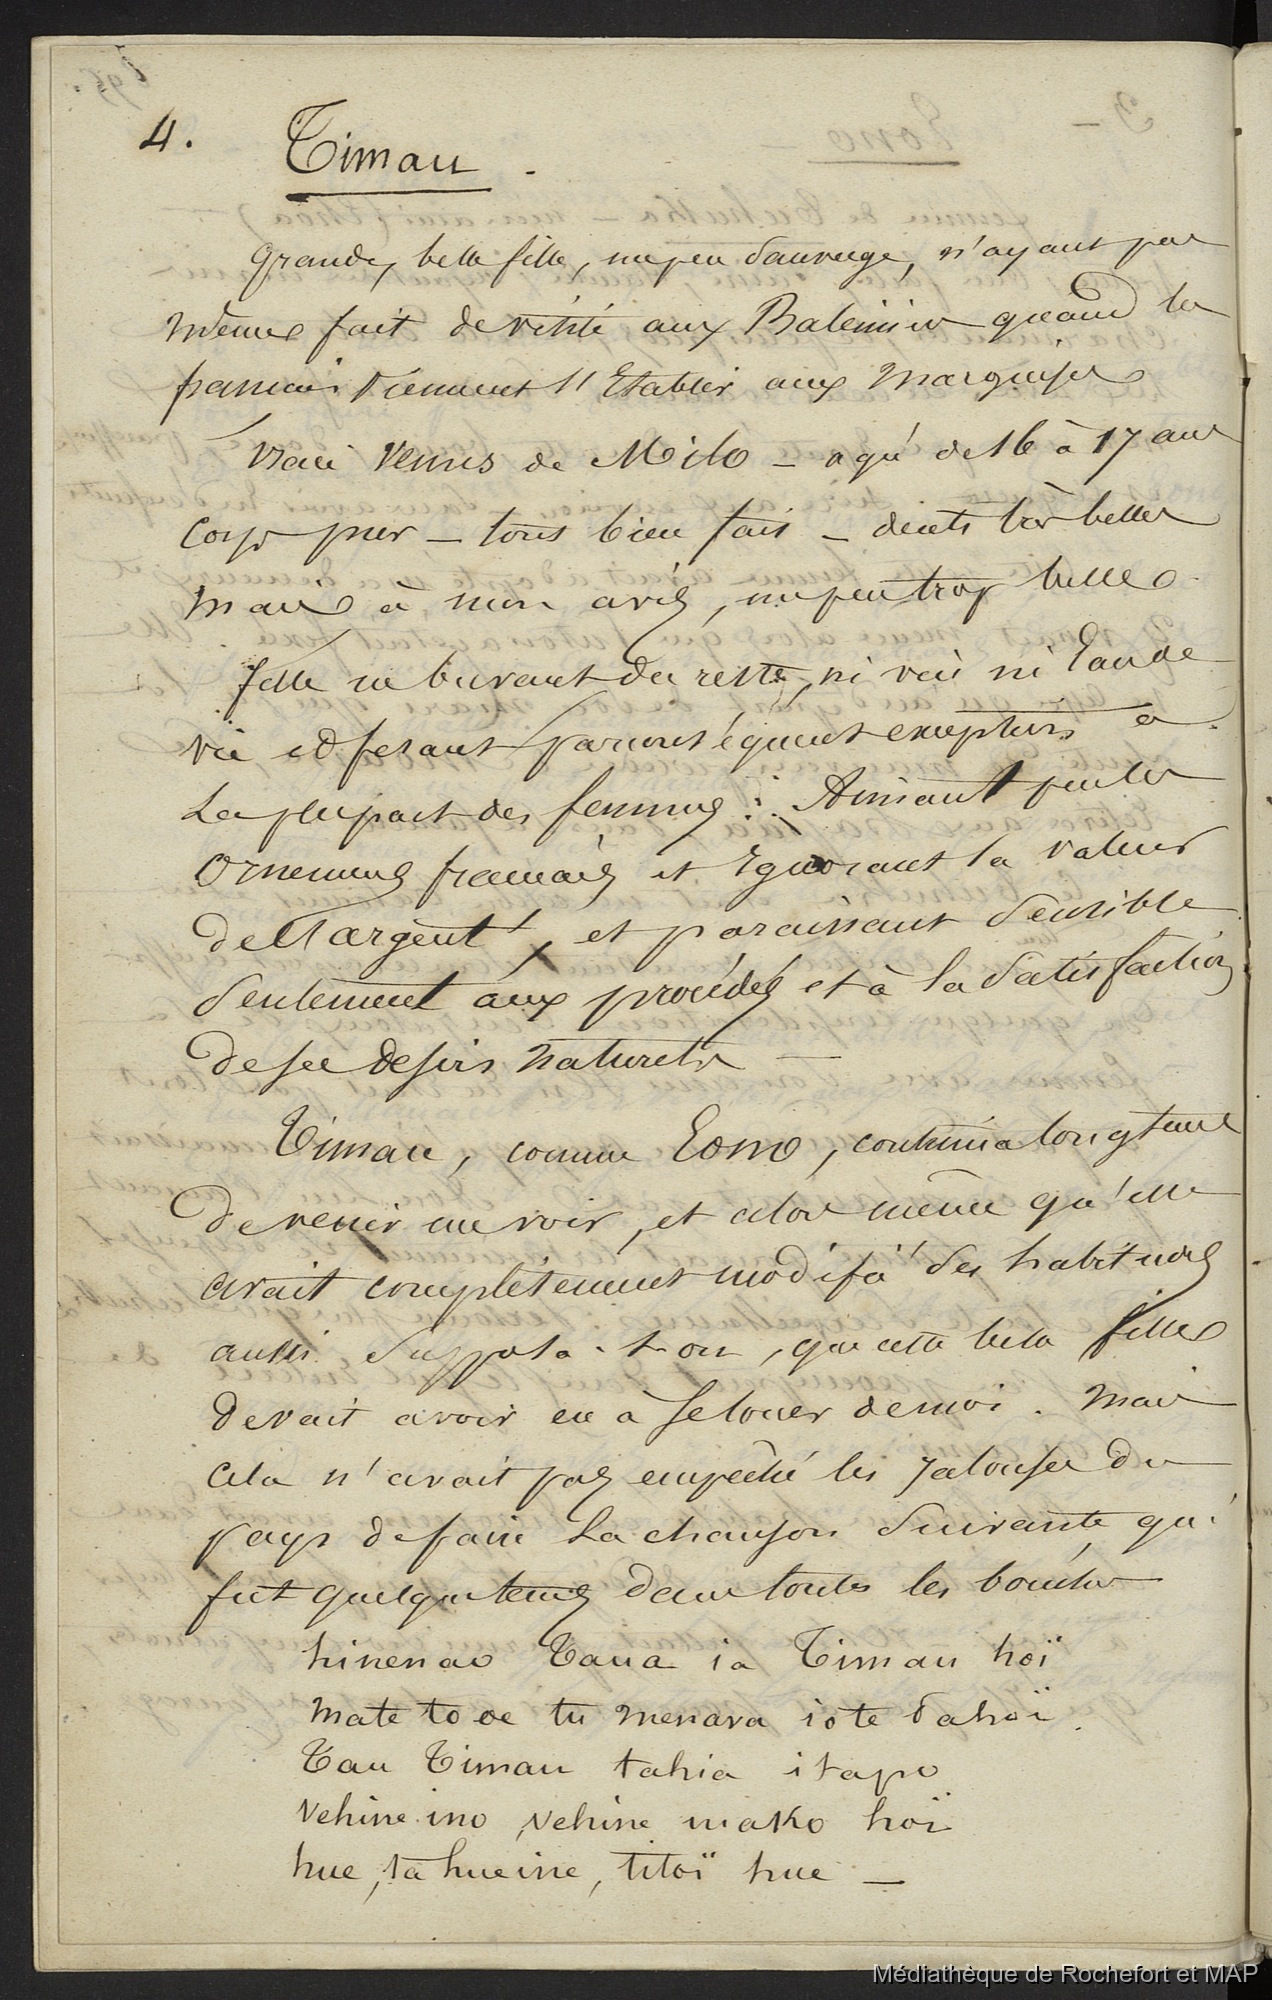 4. Timau.
grande, belle fille, un peu sauvage, n'ayant pas
même fait de visite aux Baleiniers quand les
français viennent s'Etablir aux Marquises
vraie Venus de Milo – agé de 16 à 17 ans
corps pur – tous bien fais – dents très belles
mais à mon avis, un peu trop belle
fille ne buvant du reste, ni vin ni Eau de
vie et fesant par conséquent exception à
la plupart des femmes : Aimant peu les
ornemens français et Ignorant la valeur
de l'argent, et paraissant sensible
seulement aux procédés et à la satisfaction
de ses desirs naturels —
Timau, comme Eomo, continua longtems
de venir me voir, et alors même qu'elle
avait complétement modifié ses habitudes
aussi supposa-t-on, que cette belle fille
devait avoir eu à se louer de moi. Mais
cela n'avait pas empêché les jalouses du
pays de faire la chanson suivante, qui
fut quelque tems dans toutes les bouches
hinenao Taua ia Timau hoï
mate to oe tu menava iote Sahoï.
Tau Timau tahia i tapo
vehine ino, vehine mako hoï
hue, ta hueine, titoï hue —
Médiathèque de Rochefort et MAP